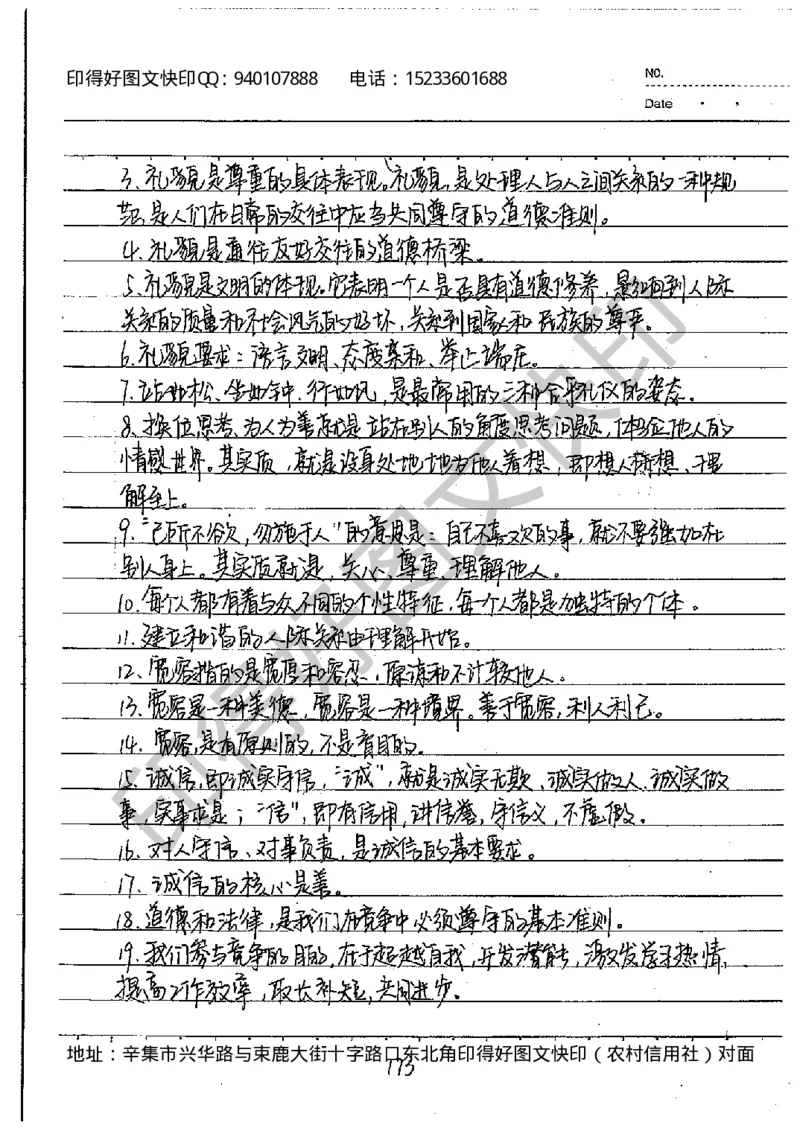 印得好图文快印QQ：940107888 电话：15233601688
NO.
Date
3、礼貌是尊重的具体表现。礼貌，是处理人与人之间关系的一种规
范，是人们在日常的交往中应当共同尊守的道德准则。
4、礼貌是通往友好交往的道德桥梁。
5、礼貌是文明的体现。它表明一个人是否具有道德修养，影响到人际
关系的质量和社会风气的好坏，关系到国家和民族的尊严。
6、礼貌要求：语言文明、态度亲和、举止端庄。
7、站如松、坐如钟、行如风，是最常用的三种合乎礼仪的姿态。
8、换位思考、为人为善就是站在别人的角度思考问题，体验他人的
情感世界。其实质，就是设身处地地为他人着想，即想人所想、理
解至上。
9、“己所不欲，勿施于人”的意思是：自己不喜欢的事，就不要强加在
别人身上。其实质就是，关心、尊重、理解他人。
10、每个人都有着与众不同的个性特征，每一个人都是独特的个体。
11、建立和谐的人际关系由理解开始。
12、宽容指的是宽厚和容忍，原谅和不计较他人。
13、宽容是一种美德，宽容是一种境界。善于宽容，利人利己。
14、宽容，是有原则的，不是盲目的。
15、诚信，即诚实守信，“诚”，就是诚实无欺、诚实做人、诚实做
事，实事求是；“信”，即有信用，讲信誉，守信义，不虚假。
16、对人守信、对事负责，是诚信的基本要求。
17、诚信的核心是善。
18、道德和法律，是我们在竞争中必须遵守的基本准则。
19、我们参与竞争的目的，在于超越自我，开发潜能，激发学习热情，
提高工作效率，取长补短，共同进步。
地址：辛集市兴华路与束鹿大街十字路口东北角印得好图文快印（农村信用社）对面
173
印得好图文快印